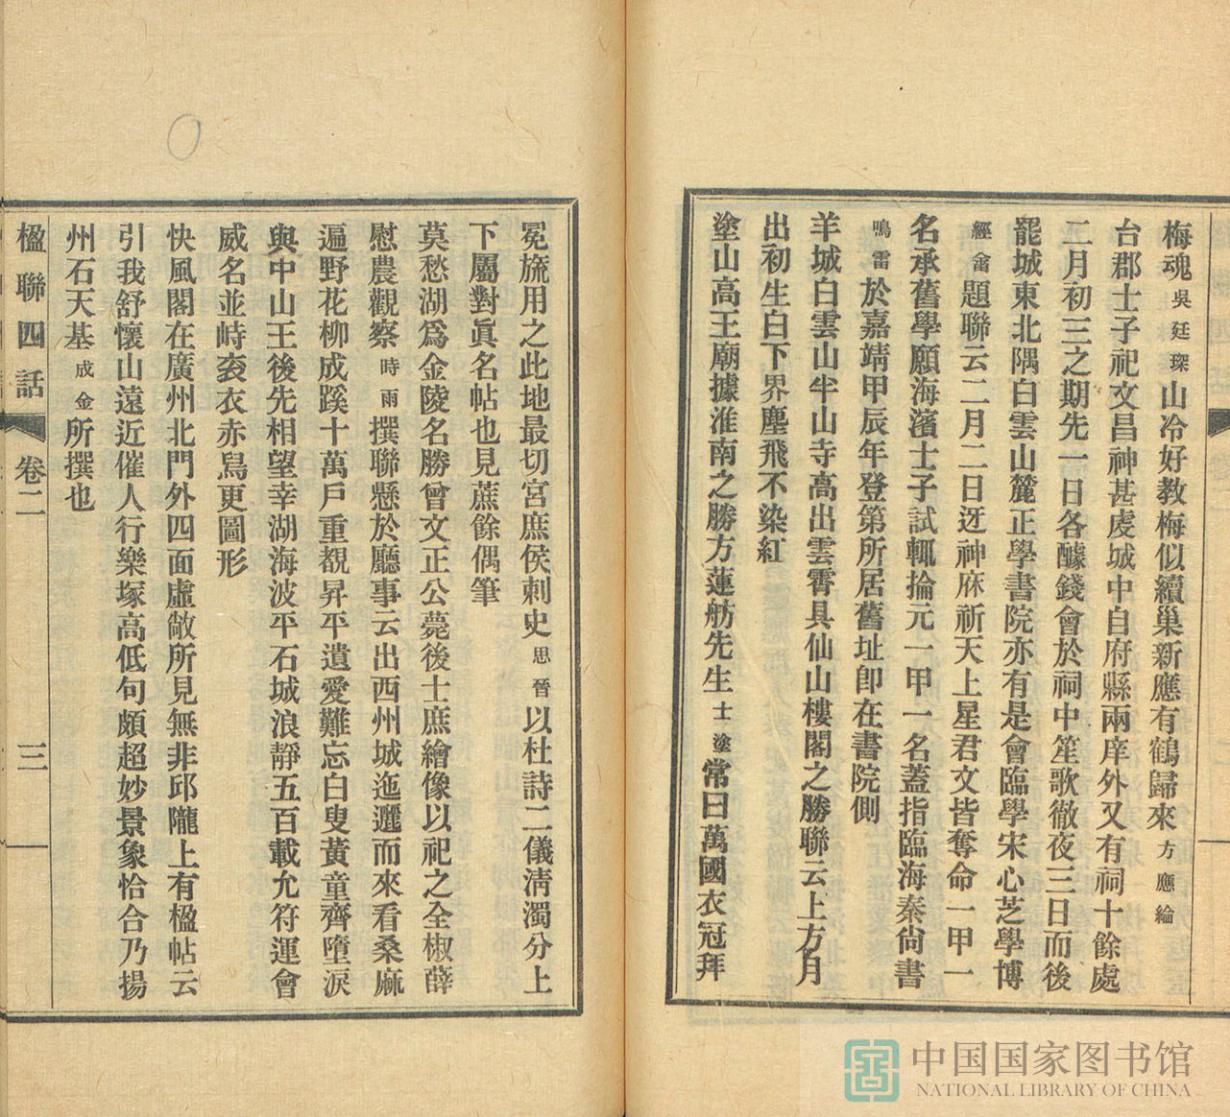 梅魂吳廷琛山冷好教梅似續巢新應有鶴歸來方應綸
台郡士子祀文昌神甚虔城中自府縣兩庠外又有祠十餘處
二月初三之期先一日各醵錢會於祠中笙歌徹夜三日而後
罷城東北隅白雲山麓正學書院亦有是會臨學宋心芝學博
經畬題聯云二月二日迓神庥祈天上星君文皆奪命一甲一
名承舊學願海濱士子試輒掄元一甲一名蓋指臨海秦尙書
鳴雷於嘉靖甲辰年登第所居舊址卽在書院側
羊城白雲山半山寺高出雲霄具仙山樓閣之勝聯云上方月
出初生白下界塵飛不染紅
塗山高王廟據淮南之勝方蓮舫先生士塗常曰萬國衣冠拜
冕旒用之此地最切宮庶侯刺史思晉以杜詩二儀淸濁分上
下屬對眞名帖也見蔗餘偶筆
莫愁湖爲金陵名勝曾文正公薨後士庶繪像以祀之全椒薛
慰農觀察時雨撰聯懸於廳事云出西州城迤邐而來看桑麻
遍野花柳成蹊十萬戶重覩昇平遺愛難忘白叟黃童齊墮淚
與中山王後先相望幸湖海波平石城浪靜五百載允符運會
威名並峙袞衣赤舄更圖形
快風閣在廣州北門外四面虛敞所見無非邱隴上有楹帖云
引我舒懷山遠近催人行樂塚高低句頗超妙景象恰合乃揚
州石天基成金所撰也
楹聯四話 卷二 三
中国国家图书馆
NATIONAL LIBRARY OF CHINA